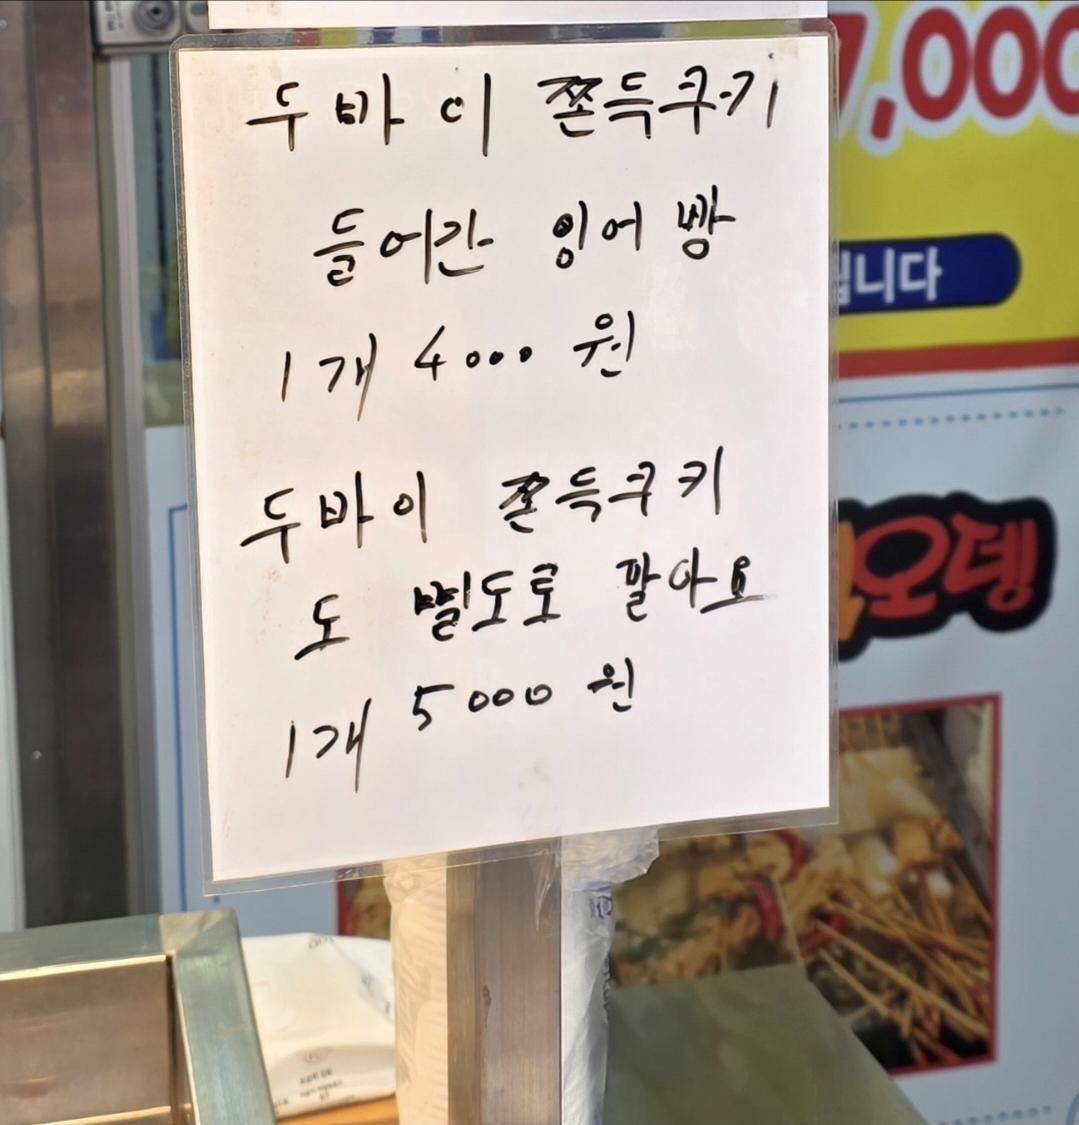 두바이 쫀득쿠키
들어간 잉어빵
1개 4000원
두바이 쫀득쿠키
도 별도로 팔아요
1개 5000원
7,000
니다
오뎅